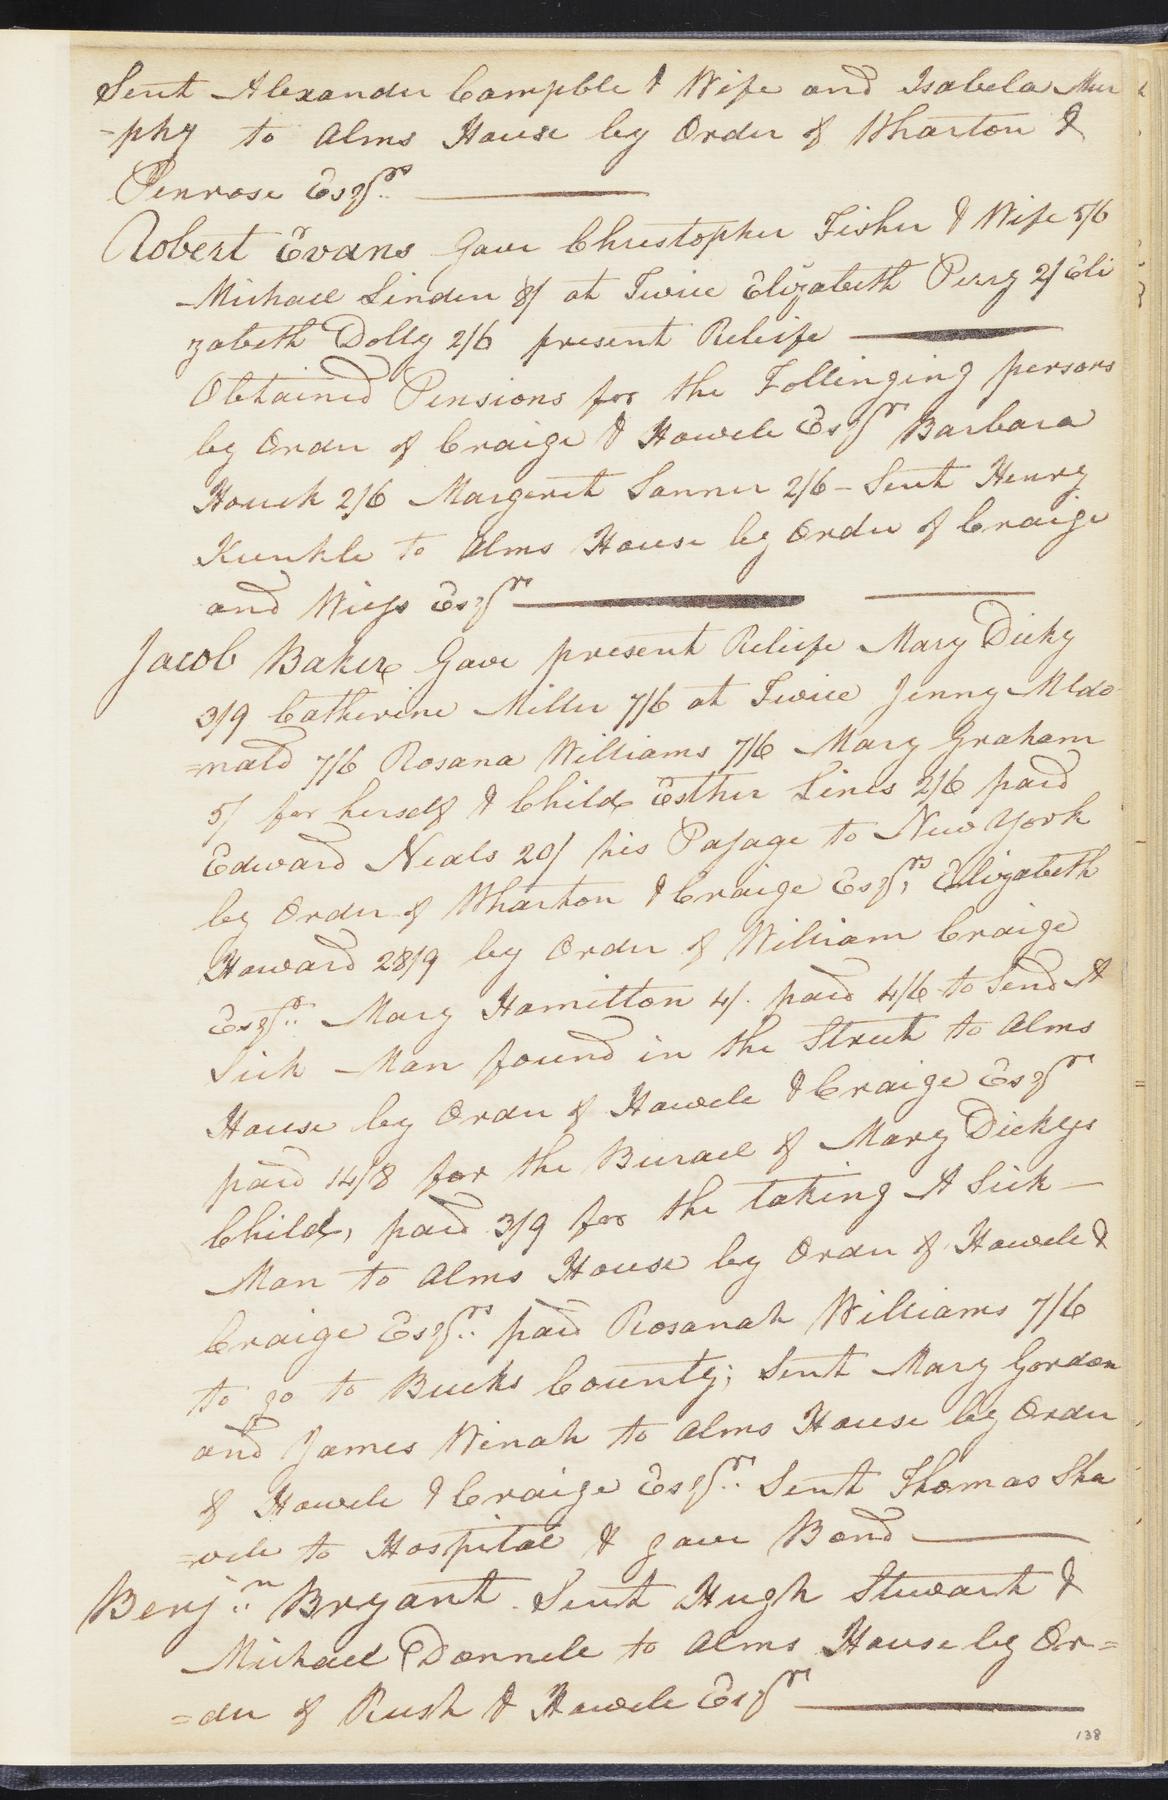 Sent Alexander Campble & Wife and Isabela Mur
-phy to Alms House by Order of Wharton &
Penrose Esqrs
Robert Evans Gave Christopher Fisher & Wife 5/6
Michael Linden 8/ at Twice Elizabeth Perry 2/ Eli
zabeth Dolly 2/6 present Releife
Obtained Pensions for the Follinging persons
by Order of Craige & Howele Esqrs Barbara
Houck 2/6 Margaret Sanner 2/6 - Sent Henry
Kunkle to Alms House by Order of Craige
and Wiijs Esqrs
Jacob Baker Gave present Releife Mary Dicky
3/9 Catherine Miller 7/6 at Twice Jenny McDo
=nald 7/6 Rosana Williams 7/6 Mary Graham
5/ for herself & Child Esther Lines 2/6 paid
Edward Neals 20/ his Pasage to New York
by Order of Wharton & Craige Esqrs, Elizabeth
Howard 28/9 by Order of William Craige
Esqr.. Mary Hamitton 4/. paid 4/6 to Send A
Sick Man found in the Street to Alms
House by Order of Howele & Craige Esqrs
paid 14/8 for the Burael of Mary Dickys
Child, paid 3/9 for the taking A Sick
Man to Alms House by Order of Howele &
Craige Esqrs.. paid Rosanah Williams 7/6
to go to Bucks County; Sent Mary Gordon
and James Winah to Alms House by Order
of Howele & Craige Esqrs.. Sent Thomas Sha
=vele to Hospital & gave Bond
Benjn.. Bryant Sent Hugh Stewart &
Michael Donnele to Alms House by Or=
=der of Rush & Howele Esqrs
138